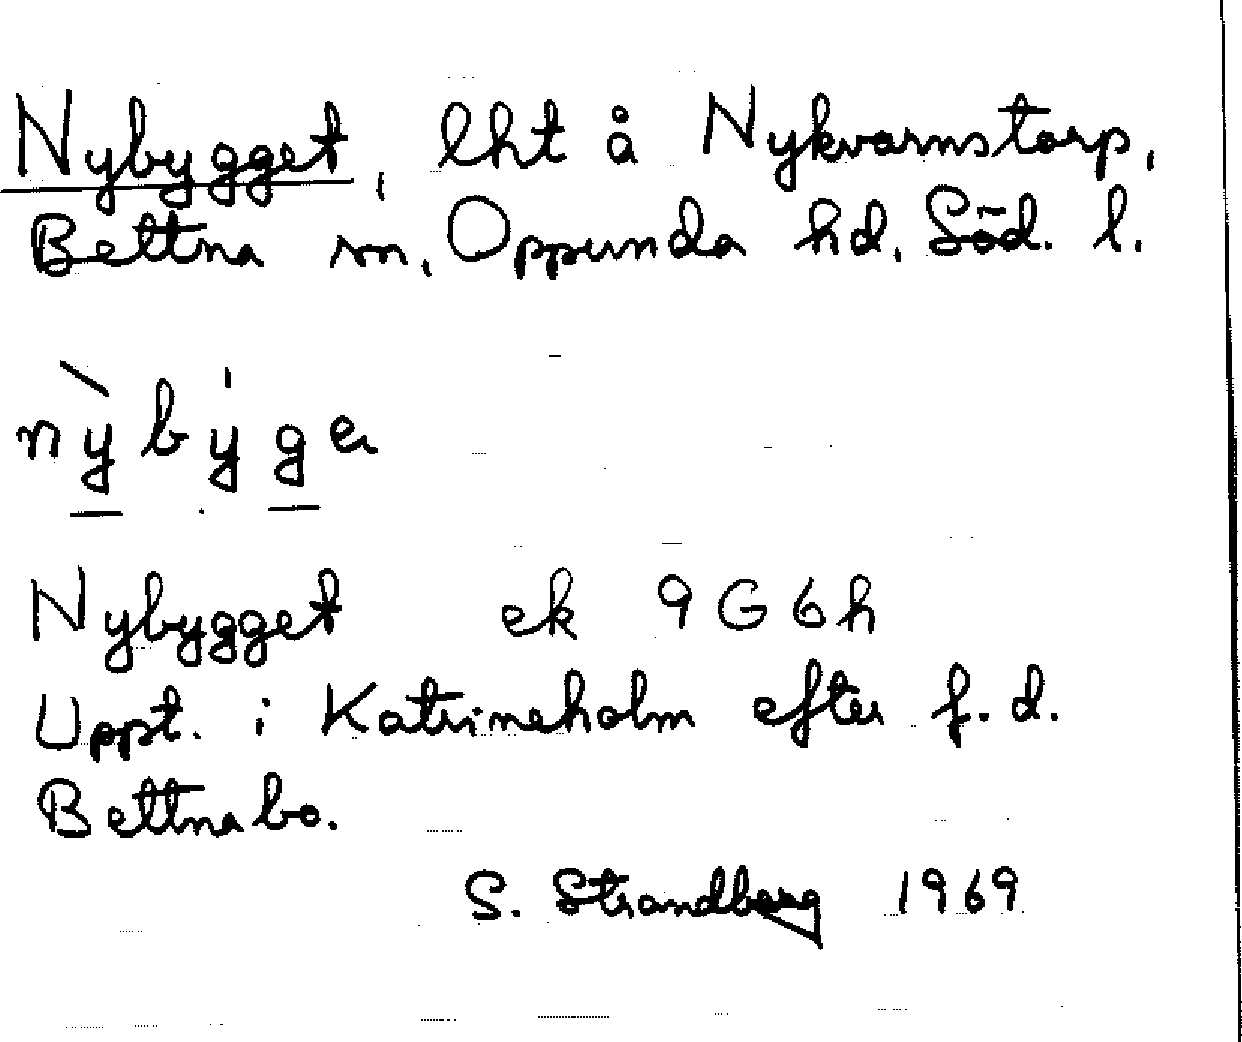 Nybygget, lht å Nykvarnstorp,
Bettna sn, Oppunda hd, Söd. l.
nỳbýga
Nybygget ek 9G6h
Uppt. i Katrineholm efter f.d.
Bettnabo.
S. Strandberg 1969